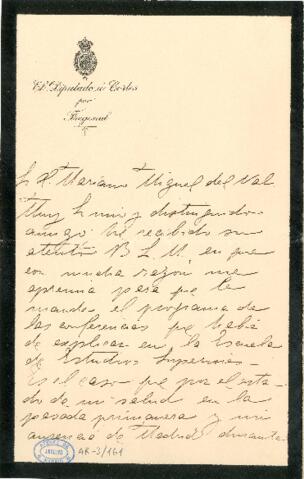 El Diputado á Cortes
por
Fregenal
S. D. Mariano Miguel del Val
Muy Sr mio y distinguido
amigo: he recibido su
atento B. L. M. en que
con mucha razon me
apremia para que le
mande el programa de
las conferencias que habia
de explicar en la Escuela
de Estudios Superiores-
Es el caso que por el esta-
do de mi salud en la
pasada primavera y mi
ausencia de Madrid durante
AR-3/161